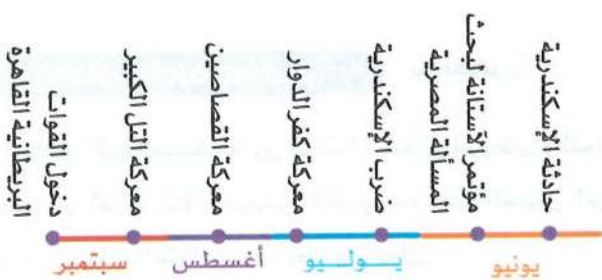 حادثة الإسكندرية
مؤتمر الآستانة لبحث
المسألة المصرية
ضرب الإسكندرية
معركة كفر الدوار
معركة القصاصين
معركة التل الكبير
دخول القوات
البريطانية القاهرة
يونيو
يـولـــيو
أغسطس
سبتمبر